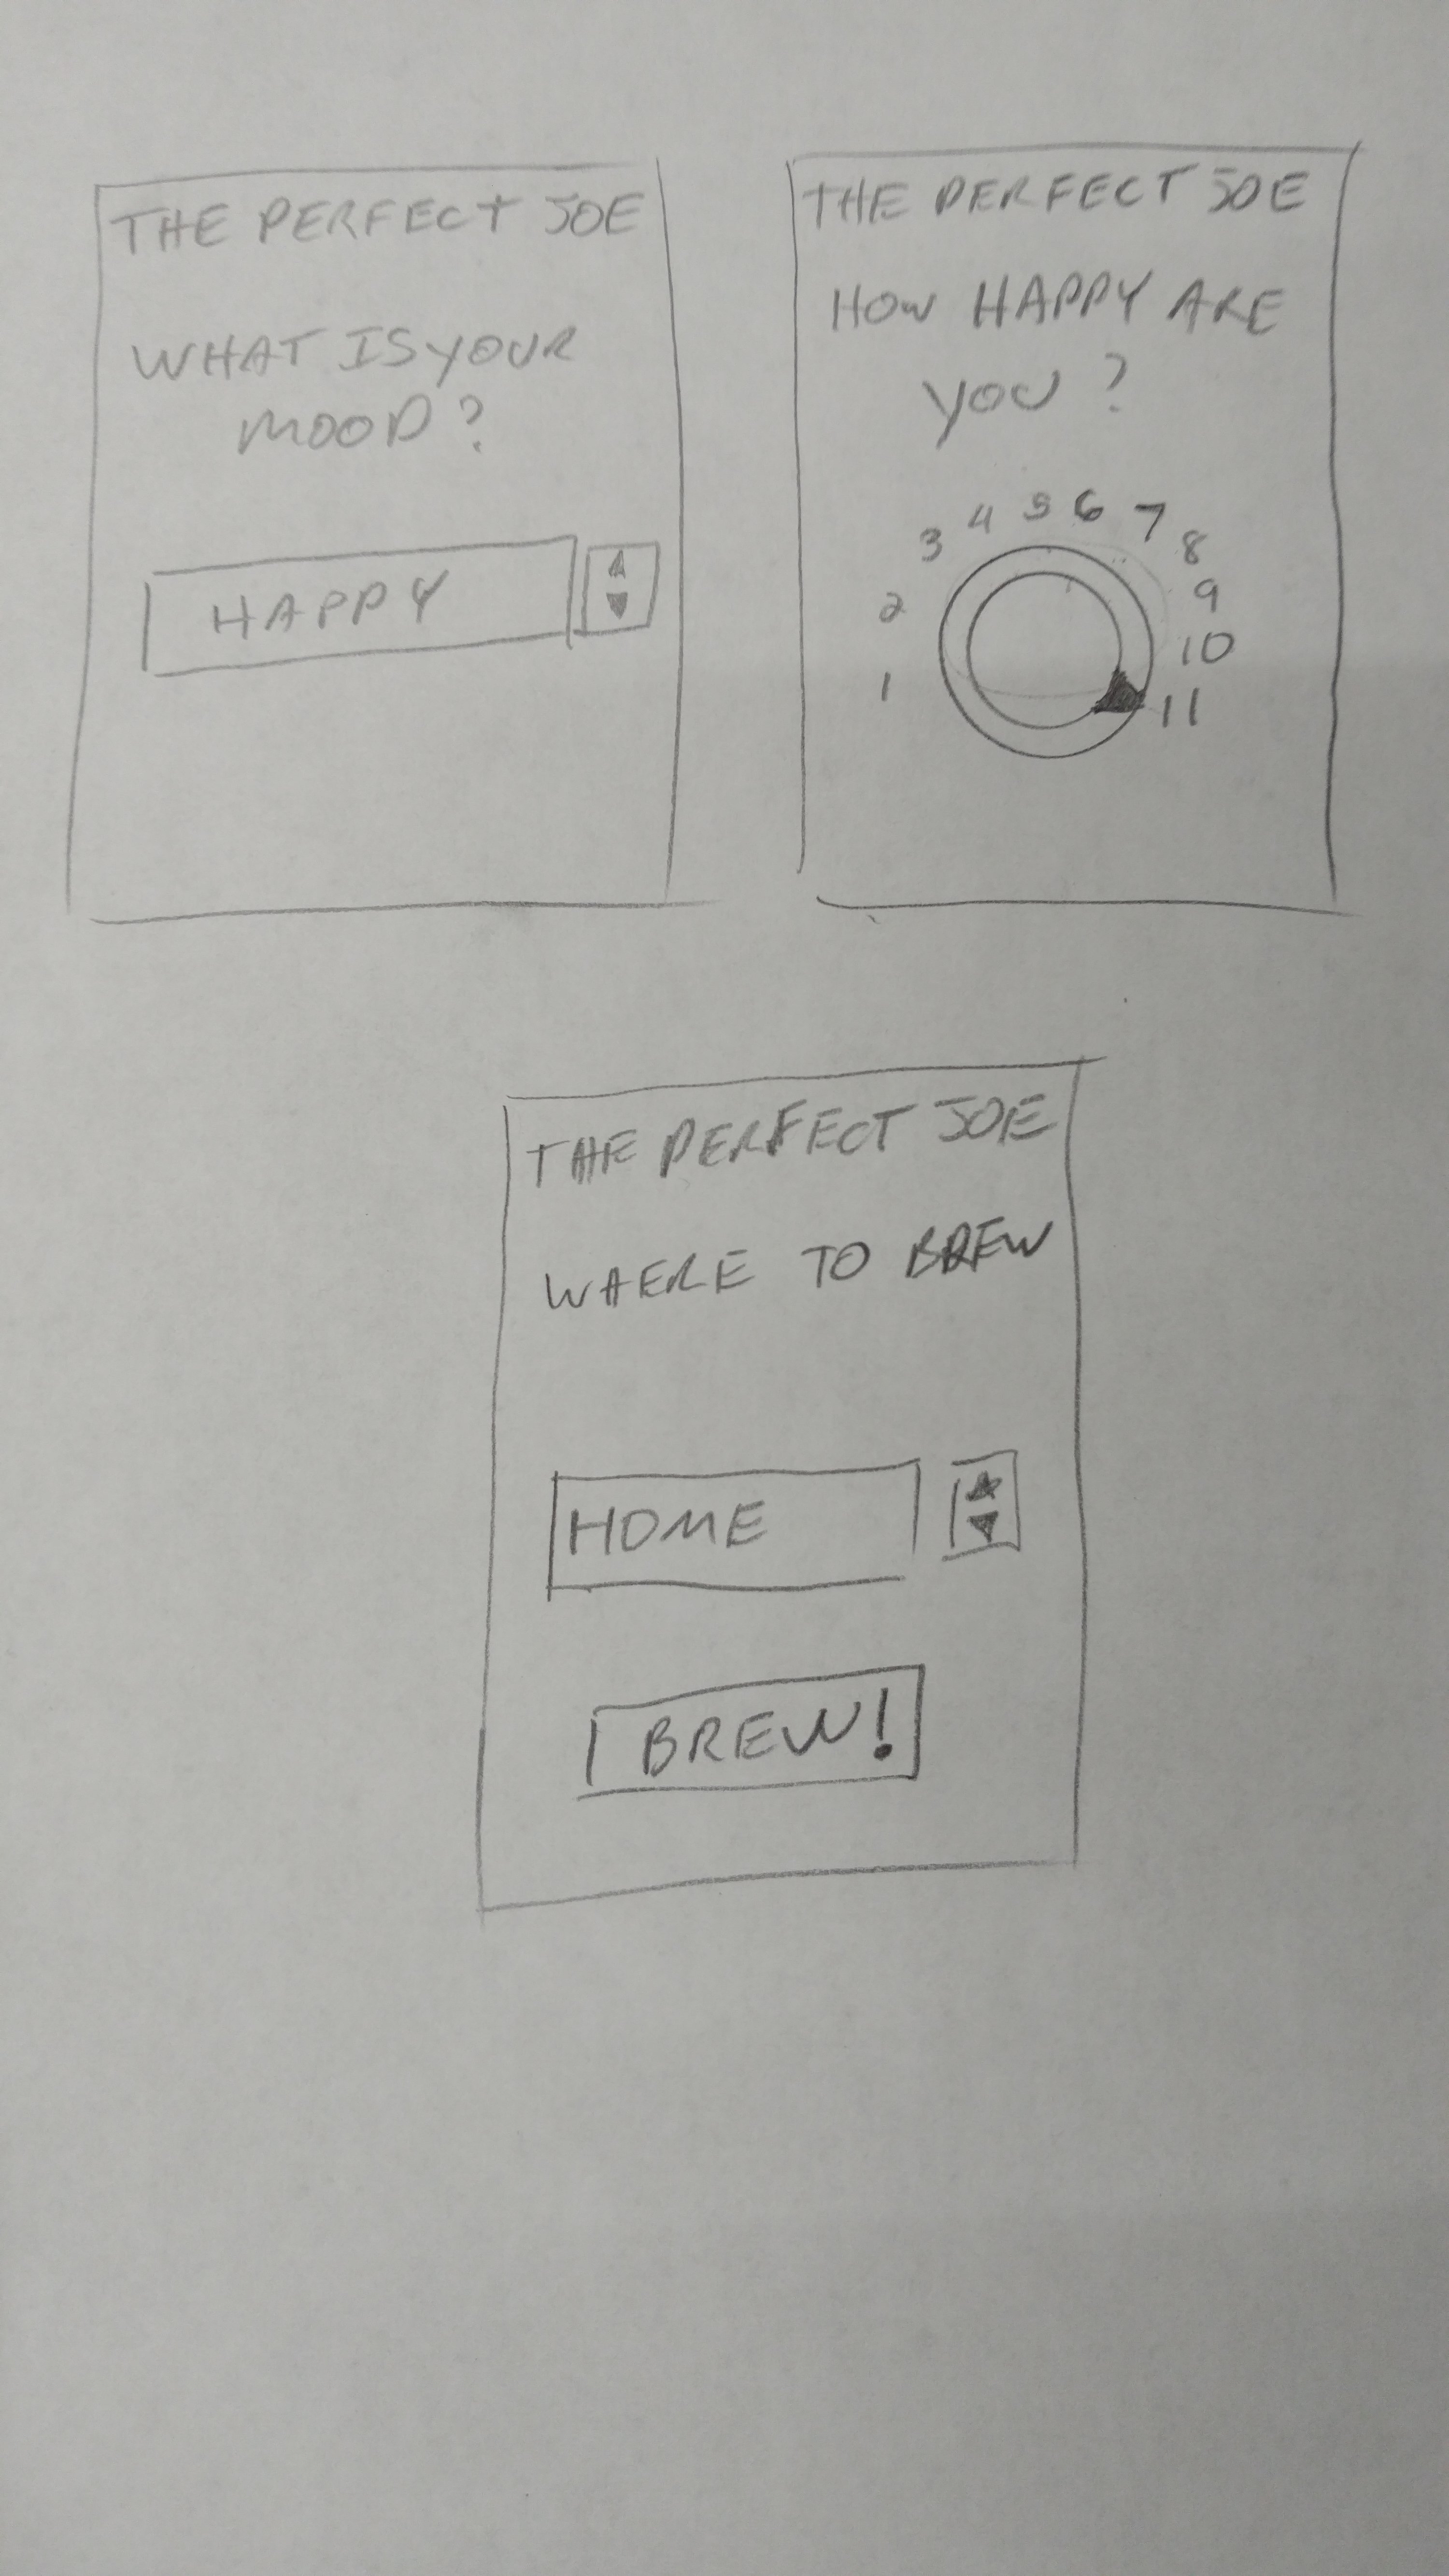 THE PERFECT JOE
WHAT IS YOUR
MOOD?
HAPPY
THE PERFECT JOE
HOW HAPPY ARE
YOU?
1 2 3 4 5 6 7 8 9 10 11
THE PERFECT JOE
WHERE TO BREW
HOME
BREW!